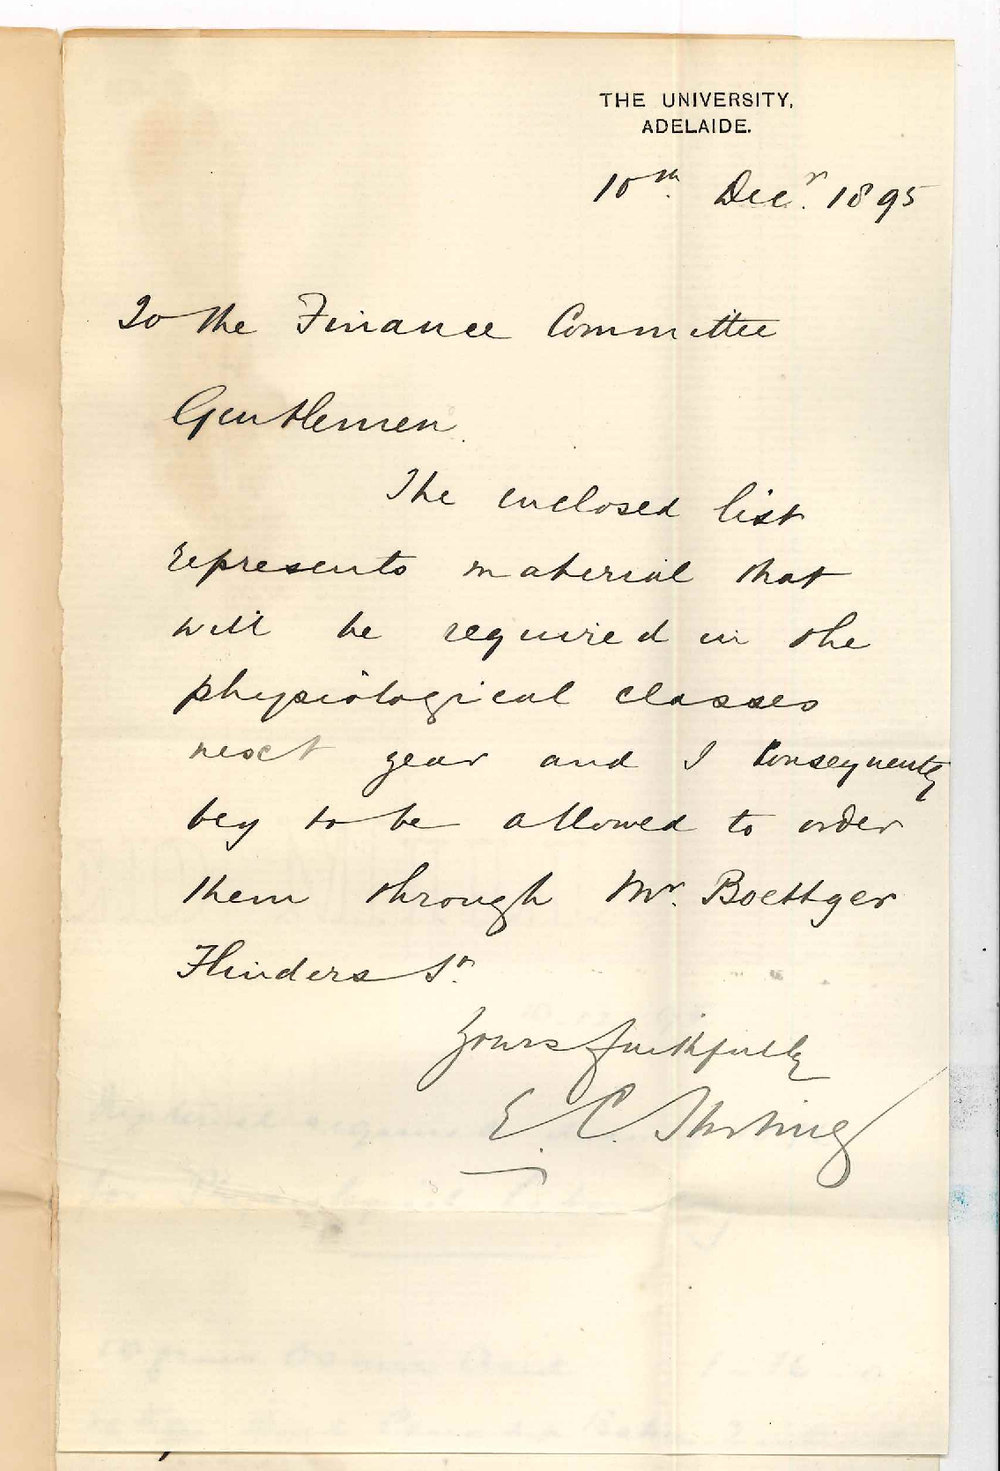 THE UNIVERSITY,
ADELAIDE.
10th. Decr. 1895
To the Finance Committee
Gentlemen
The enclosed list
represents material that
will be required in the
physiological classes
next year and I consequently
beg to be allowed to order
them through Mr. Boettger
Flinders St.
Yours faithfully
E. C. Stirling